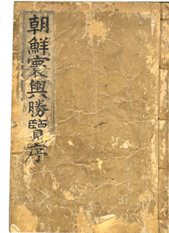 朝鮮寰輿勝覽序